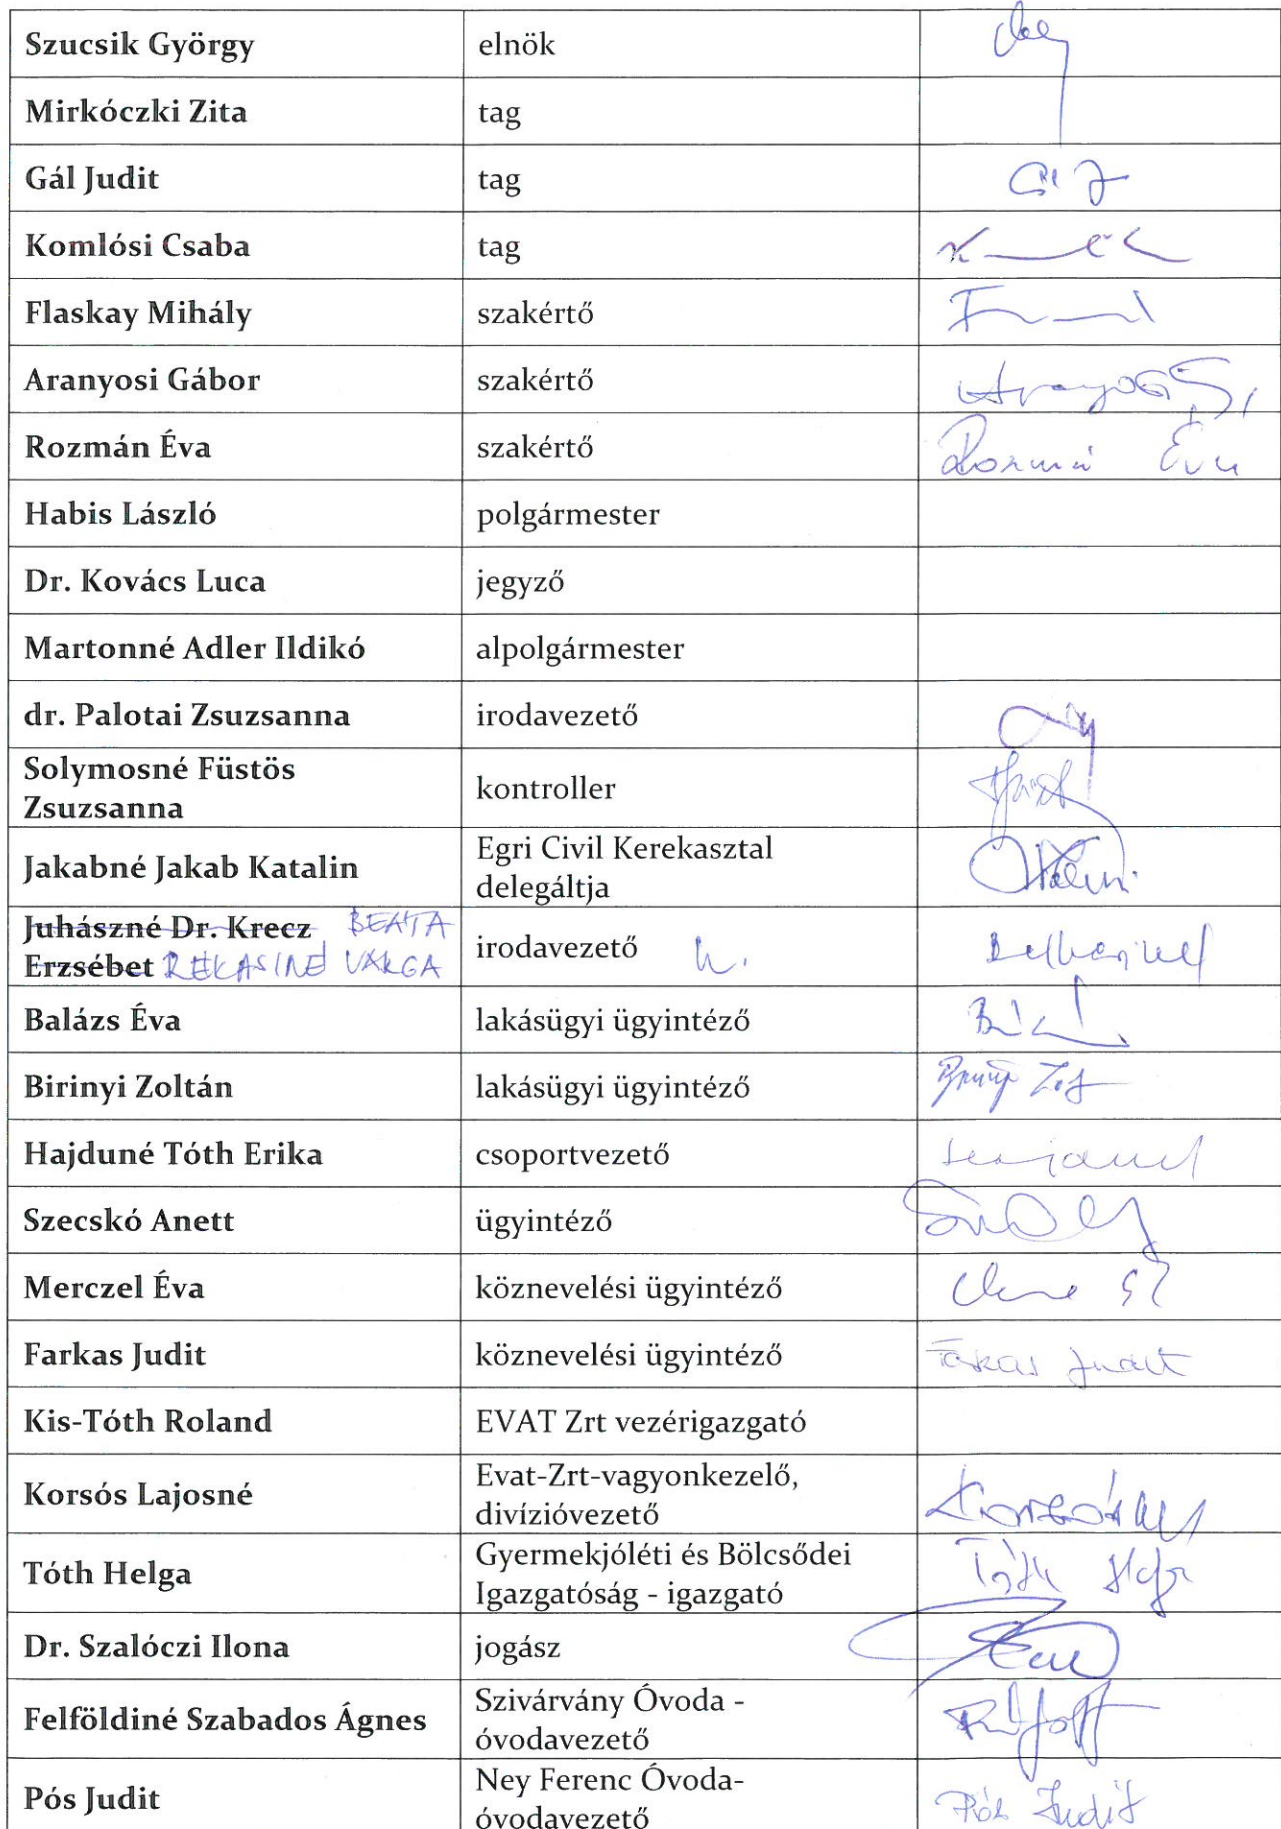 Szucsik György elnök
Mirkóczki Zita tag
Gál Judit tag
Komlósi Csaba tag
Flaskay Mihály szakértő
Aranyosi Gábor szakértő
Rozmán Éva szakértő
Habis László polgármester
Dr. Kovács Luca jegyző
Martonné Adler Ildikó alpolgármester
dr. Palotai Zsuzsanna irodavezető
Solymosné Füstös
Zsuzsanna
kontroller
Jakabné Jakab Katalin
Egri Civil Kerekasztal
delegáltja
Juhászné Dr. Krecz BEATA
Erzsébet REKASINÉ VARGA
irodavezető h.
Balázs Éva lakásügyi ügyintéző
Birinyi Zoltán lakásügyi ügyintéző
Hajduné Tóth Erika csoportvezető
Szecskó Anett ügyintéző
Merczel Éva köznevelési ügyintéző
Farkas Judit köznevelési ügyintéző Farkas Judit
Kis-Tóth Roland EVAT Zrt vezérigazgató
Korsós Lajosné
Evat-Zrt-vagyonkezelő,
divízióvezető
Tóth Helga
Gyermekjóléti és Bölcsődei
Igazgatóság - igazgató
Tóth Helga
Dr. Szalóczi Ilona jogász
Felföldiné Szabados Ágnes
Szivárvány Óvoda -
óvodavezető
Pós Judit
Ney Ferenc Óvoda-
óvodavezető
Pós Judit